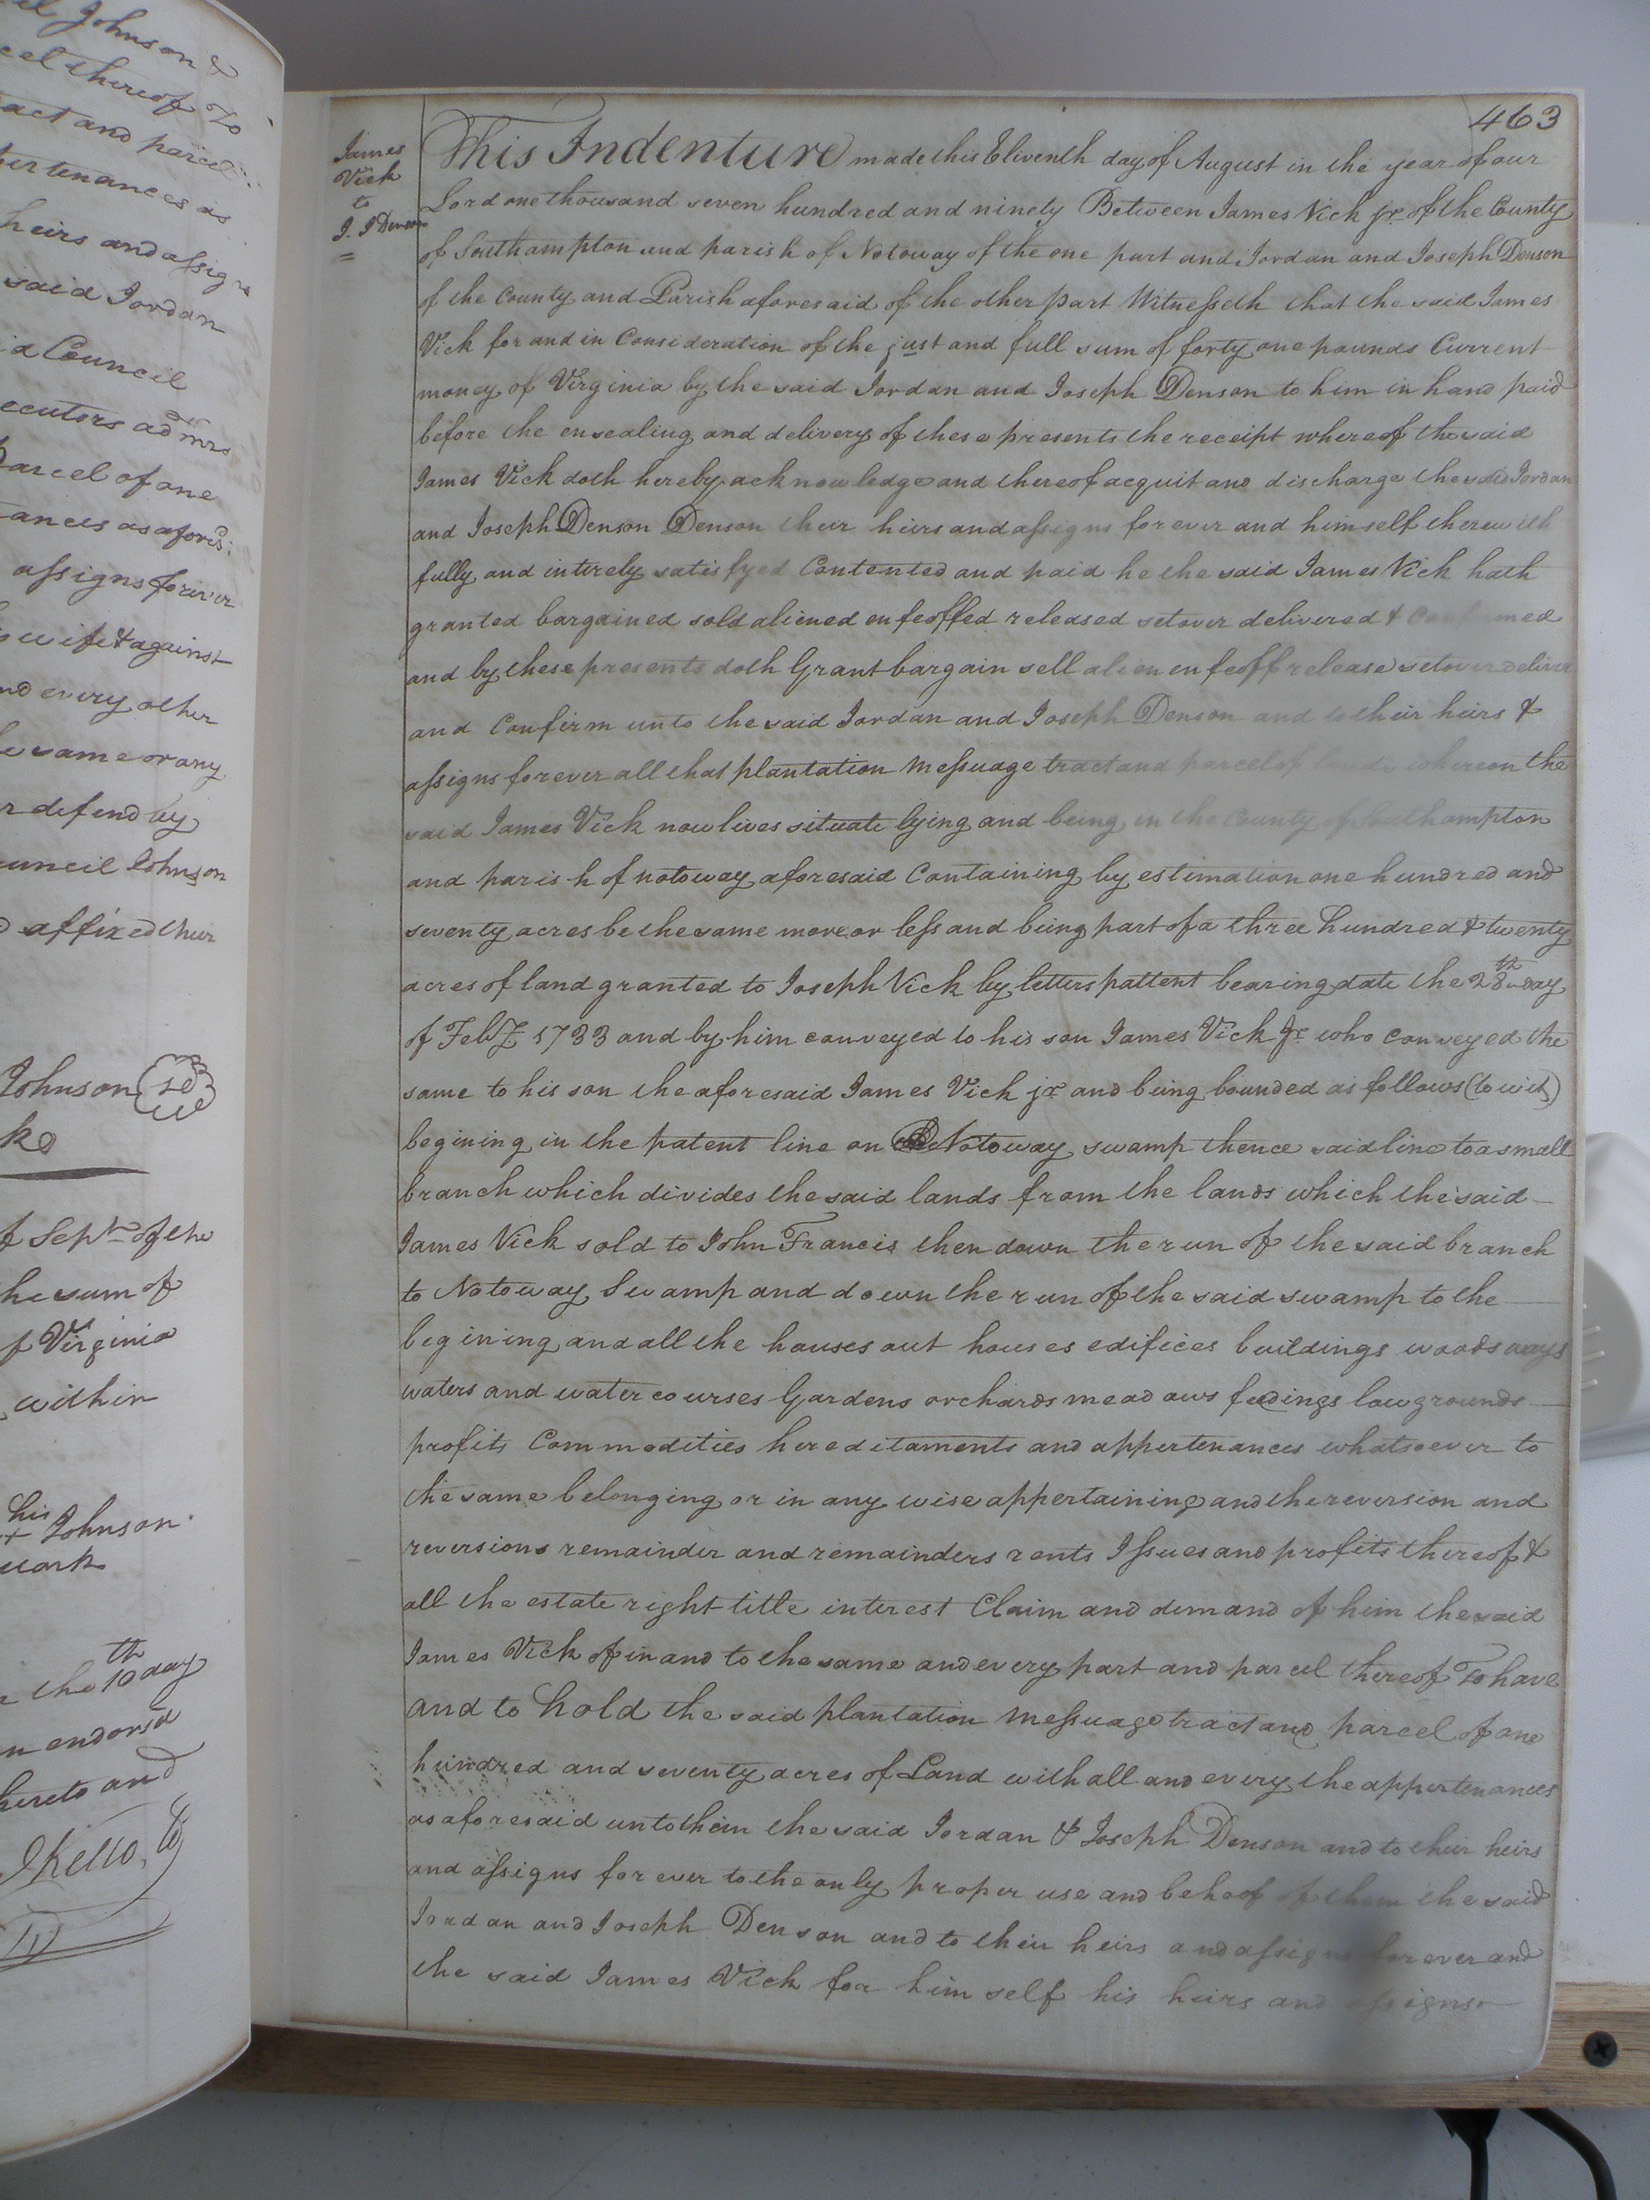 el Johnson &
cel thereof To
act and parcel
pertenances as
heirs and assigns
said Jordan
id Council
ecutors admrs
parcel of one
ances as afores:d
assigns forever
s wife & against
nd every other
he same or any
r defend by
uncil Johnson
affixed their
Johnson
ke
of Septr of the
he sum of
f Virginia
within
his
+ Johnson
mark
the 10th day
n endorsd
hereto and
JKello,
463
James
Vick
to
J. J Denson
This Indenture made this Eleventh day of August in the year of our
Lord one thousand seven hundred and ninety Between James Vick jr. of the County
of Southampton and parish of Notoway of the one part and Jordan and Joseph Denson
of the County and Parish aforesaid of the other part Witnesseth that the said James
Vick for and in Consideration of the just and full sum of forty one pounds Current
money of Virginia by the said Jordan and Joseph Denson to him in hand paid
before the ensealing and delivery of these presents the receipt whereof the said
James Vick doth hereby acknowledge and thereof acquit and discharge the said Jordan
and Joseph Denson Denson their heirs and assigns for ever and himself therewith
fully and intirely satisfyed Contented and paid he the said James Vick hath
granted bargained sold aliened enfeoffed released setover delivered & Confirmed
and by these presents doth Grant bargain sell alien enfeoff release setover deliver
and Confirm unto the said Jordan and Joseph Denson and to their heirs &
assigns forever all that plantation Messuage tract and parcel of land whereon the
said James Vick now lives situate lying and being in the County of Southampton
and parish of notoway aforesaid Containing by estimation one hundred and
seventy acres be the same more or less and being part of a three hundred & twenty
acres of land granted to Joseph Vick by letters pattent bearing date the 28th day
of Feby 1733 and by him conveyed to his son James Vick Jr. who conveyed the
same to his son the aforesaid James Vick jr and being bounded as follows (to wit)
begining in the patent line on Notoway swamp thence said line to a small
branch which divides the said lands from the lands which the said
James Vick sold to John Francis then down the run of the said branch
to Notoway Swamp and down the run of the said swamp to the
begining and all the houses out houses edifices buildings woods ways
waters and water courses Gardens orchards meadows feedings lowgrounds
profits Commodities hereditaments and appertenances whatsoever to
the same belonging or in any wise appertaining and the reversion and
reversions remainder and remainders rents Issues and profits thereof &
all the estate right title interest Claim and demand of him the said
James Vick of in and to the same and every part and parcel thereof To have
and to hold the said plantation Messuage tract and parcel of one
hundred and seventy acres of Land with all and every the appertenances
as aforesaid unto them the said Jordan & Joseph Denson and to their heirs
and assigns for ever to the only proper use and behoof of them the said
Jordan and Joseph Denson and to their heirs and assigns for ever and
the said James Vick for him self his heirs and assigns